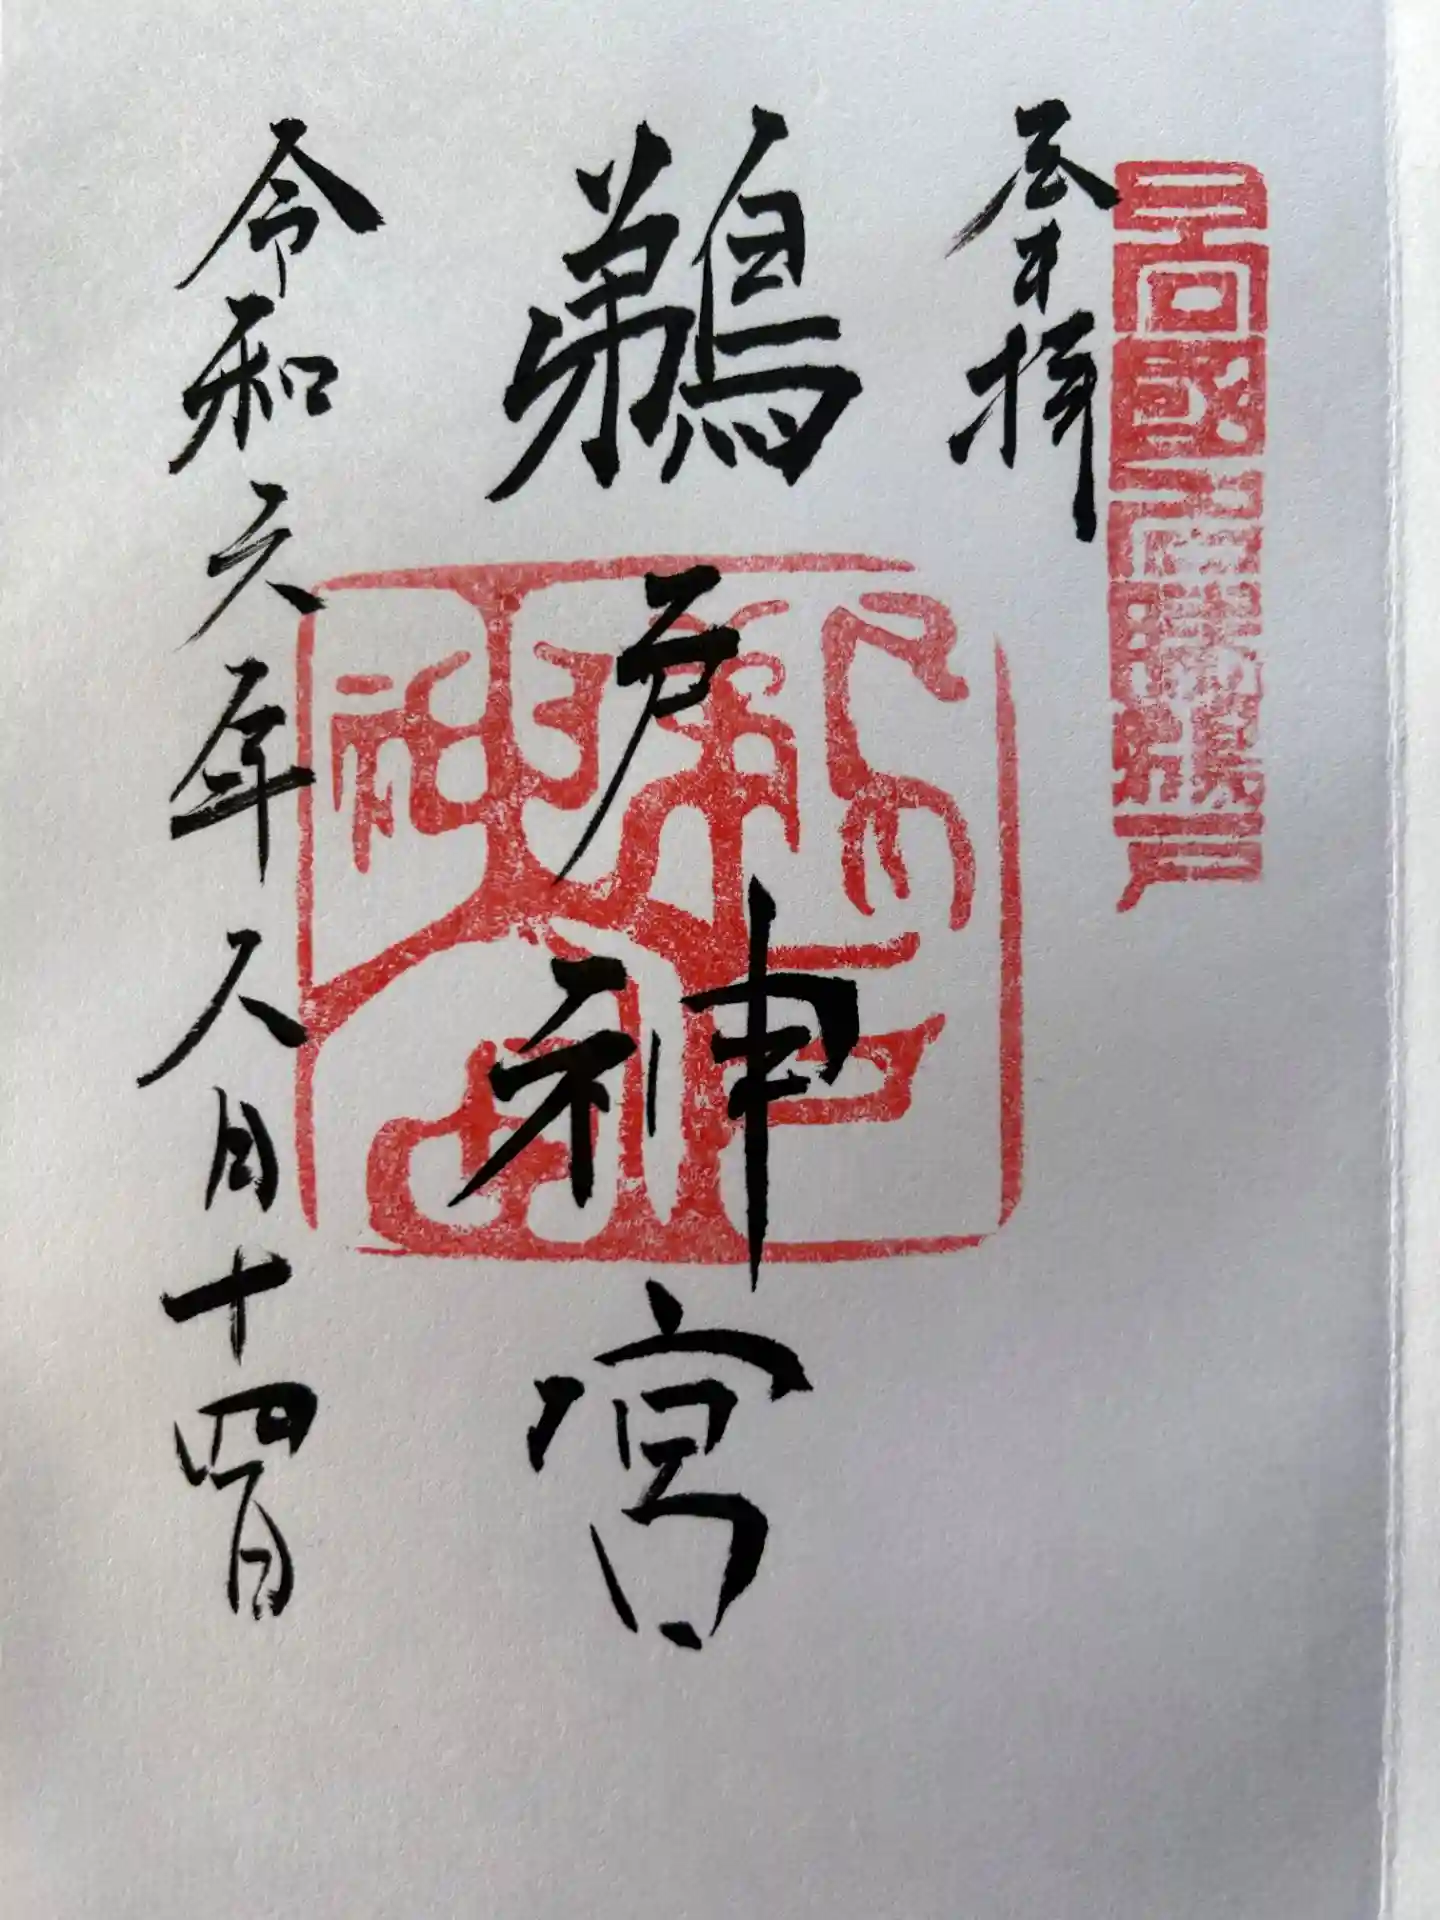 日向國
奉拝
鵜戸神宮
鵜戸神宮
令和六年八月十四日